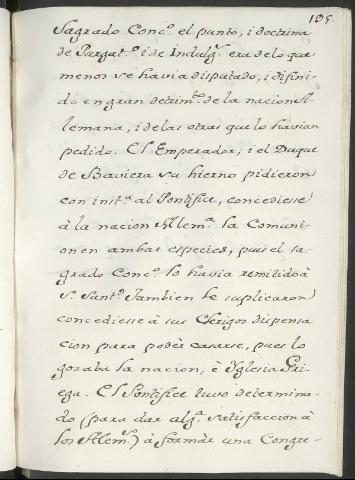 195.
Sagrado Conc.º el punto, i doctrina
de Purgat.º i de Indulg.ª era de lo que
menos se havia disputado, i difini-
do en gran detrim.to de la nacion A-
lemana, i de las otras que lo havian
pedido. El Emperador, i el Duque
de Baviera su hierno pidieron
con inst.ª al Pontifice, concediese
à la nacion Alem.ª la Comuni-
on en ambas especies, pues el sa-
grado Conc.º lo havia remitido à
S. Sant.d Tambien le suplicaron
concediesse à sus Clerigos dispensa
cion para podèr casarse, pues lo
gozaba la nacion, è Yglesia Gri-
ega. El Pontifice tuvo determina-
do (para dar alg.ª satisfaccion à
los Alem.s) à formàr una Congre-